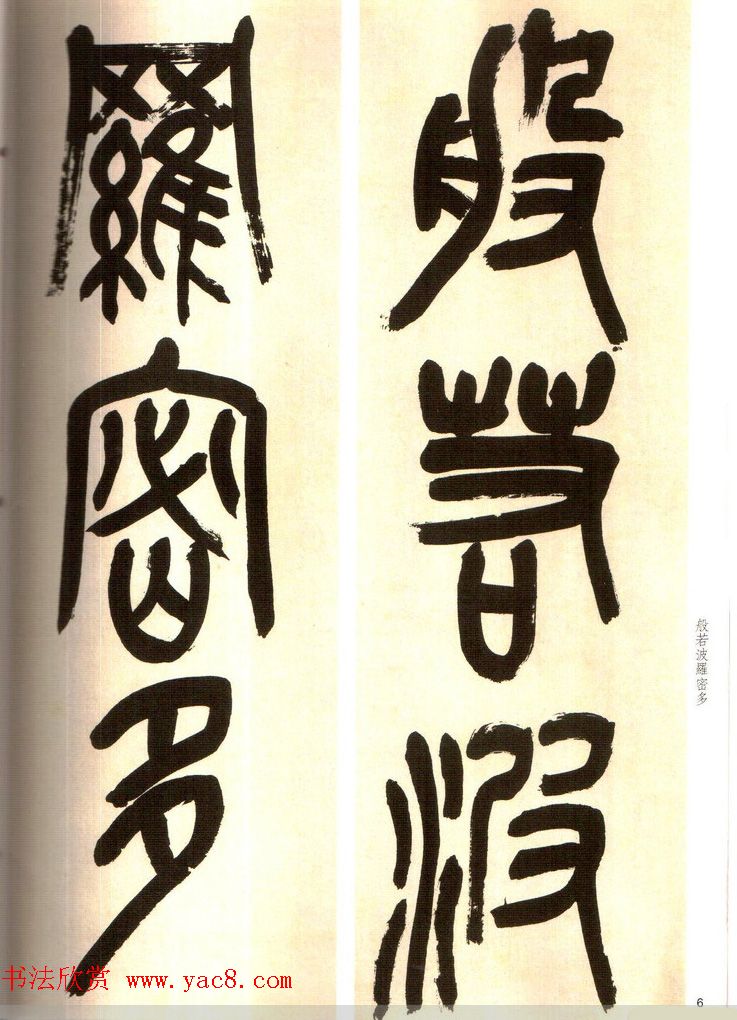 般若波
羅密多
般若波羅密多
书法欣赏 www.yac8.com
6